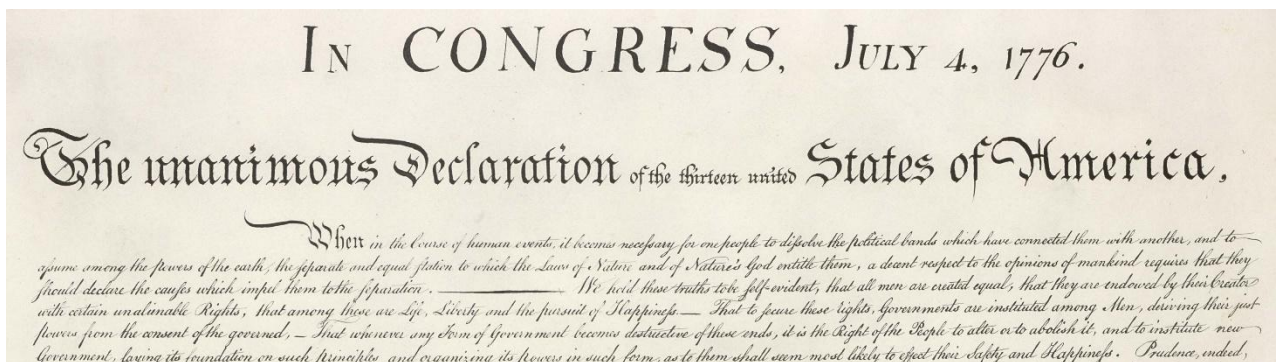 In CONGRESS, July 4, 1776.
The unanimous Declaration of the thirteen united States of America,
When in the Course of human events, it becomes necessary for one people to dissolve the political bands which have connected them with another, and to
assume among the powers of the earth, the separate and equal station to which the Laws of Nature and of Nature's God entitle them, a decent respect to the opinions of mankind requires that they
should declare the causes which impel them to the separation. ——— We hold these truths to be self-evident, that all men are created equal, that they are endowed by their Creator
with certain unalienable Rights, that among these are Life, Liberty and the pursuit of Happiness.— That to secure these rights, Governments are instituted among Men, deriving their just
powers from the consent of the governed,— That whenever any Form of Government becomes destructive of these ends, it is the Right of the People to alter or to abolish it, and to institute new
Government, laying its foundation on such principles and organizing its powers in such form, as to them shall seem most likely to effect their Safety and Happiness. Prudence, indeed,